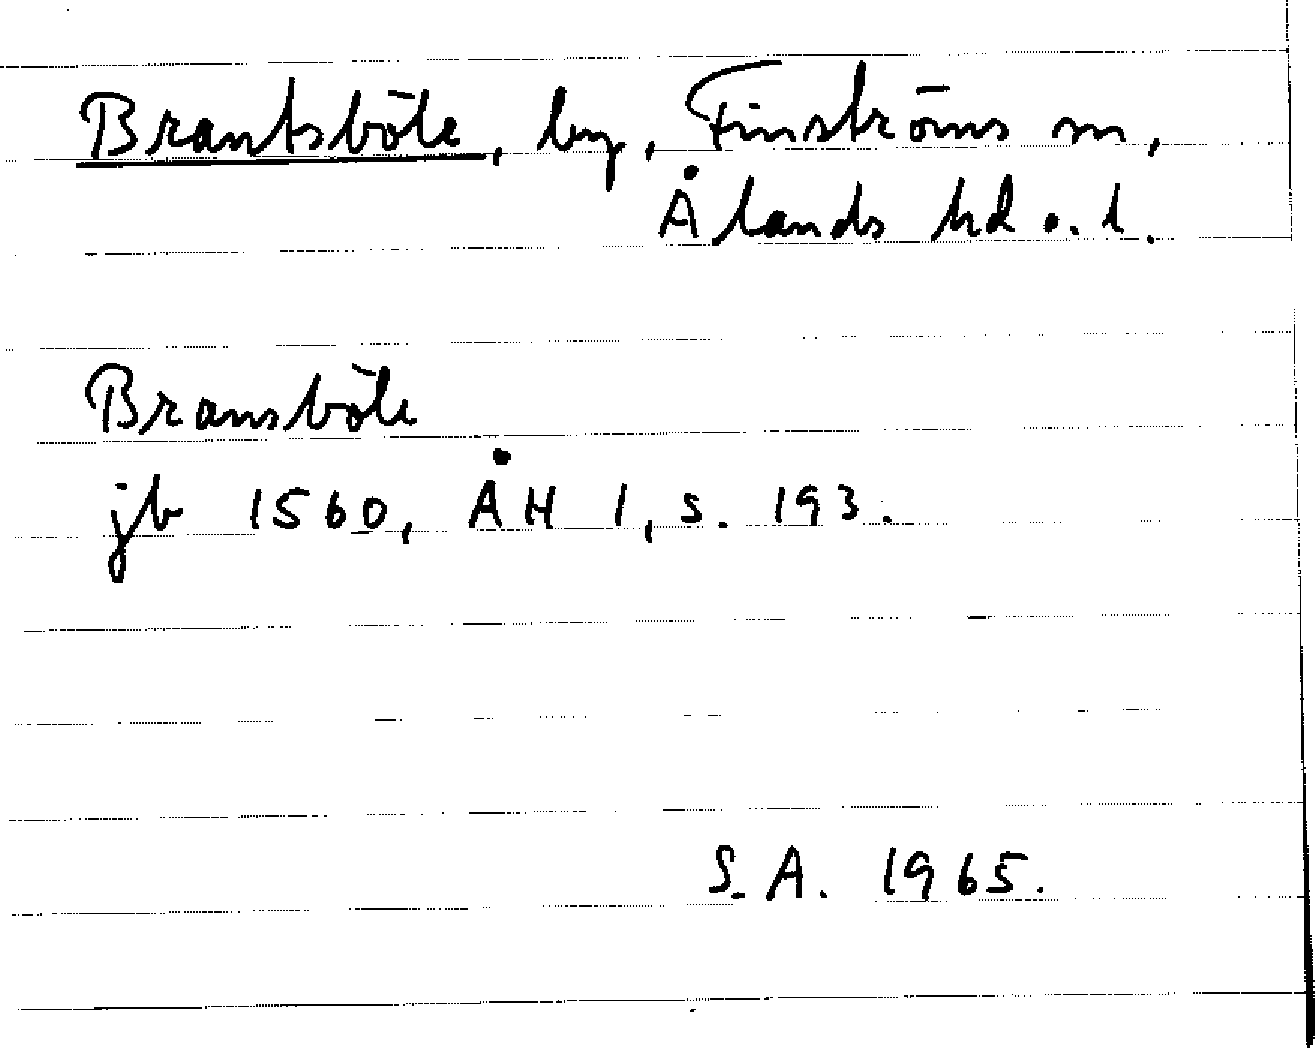 Brantsböle, by, Finströms sn,
Ålands hd o. l.
Bransböle
jb 1560, ÅH 1, s. 193.
S.A. 1965.